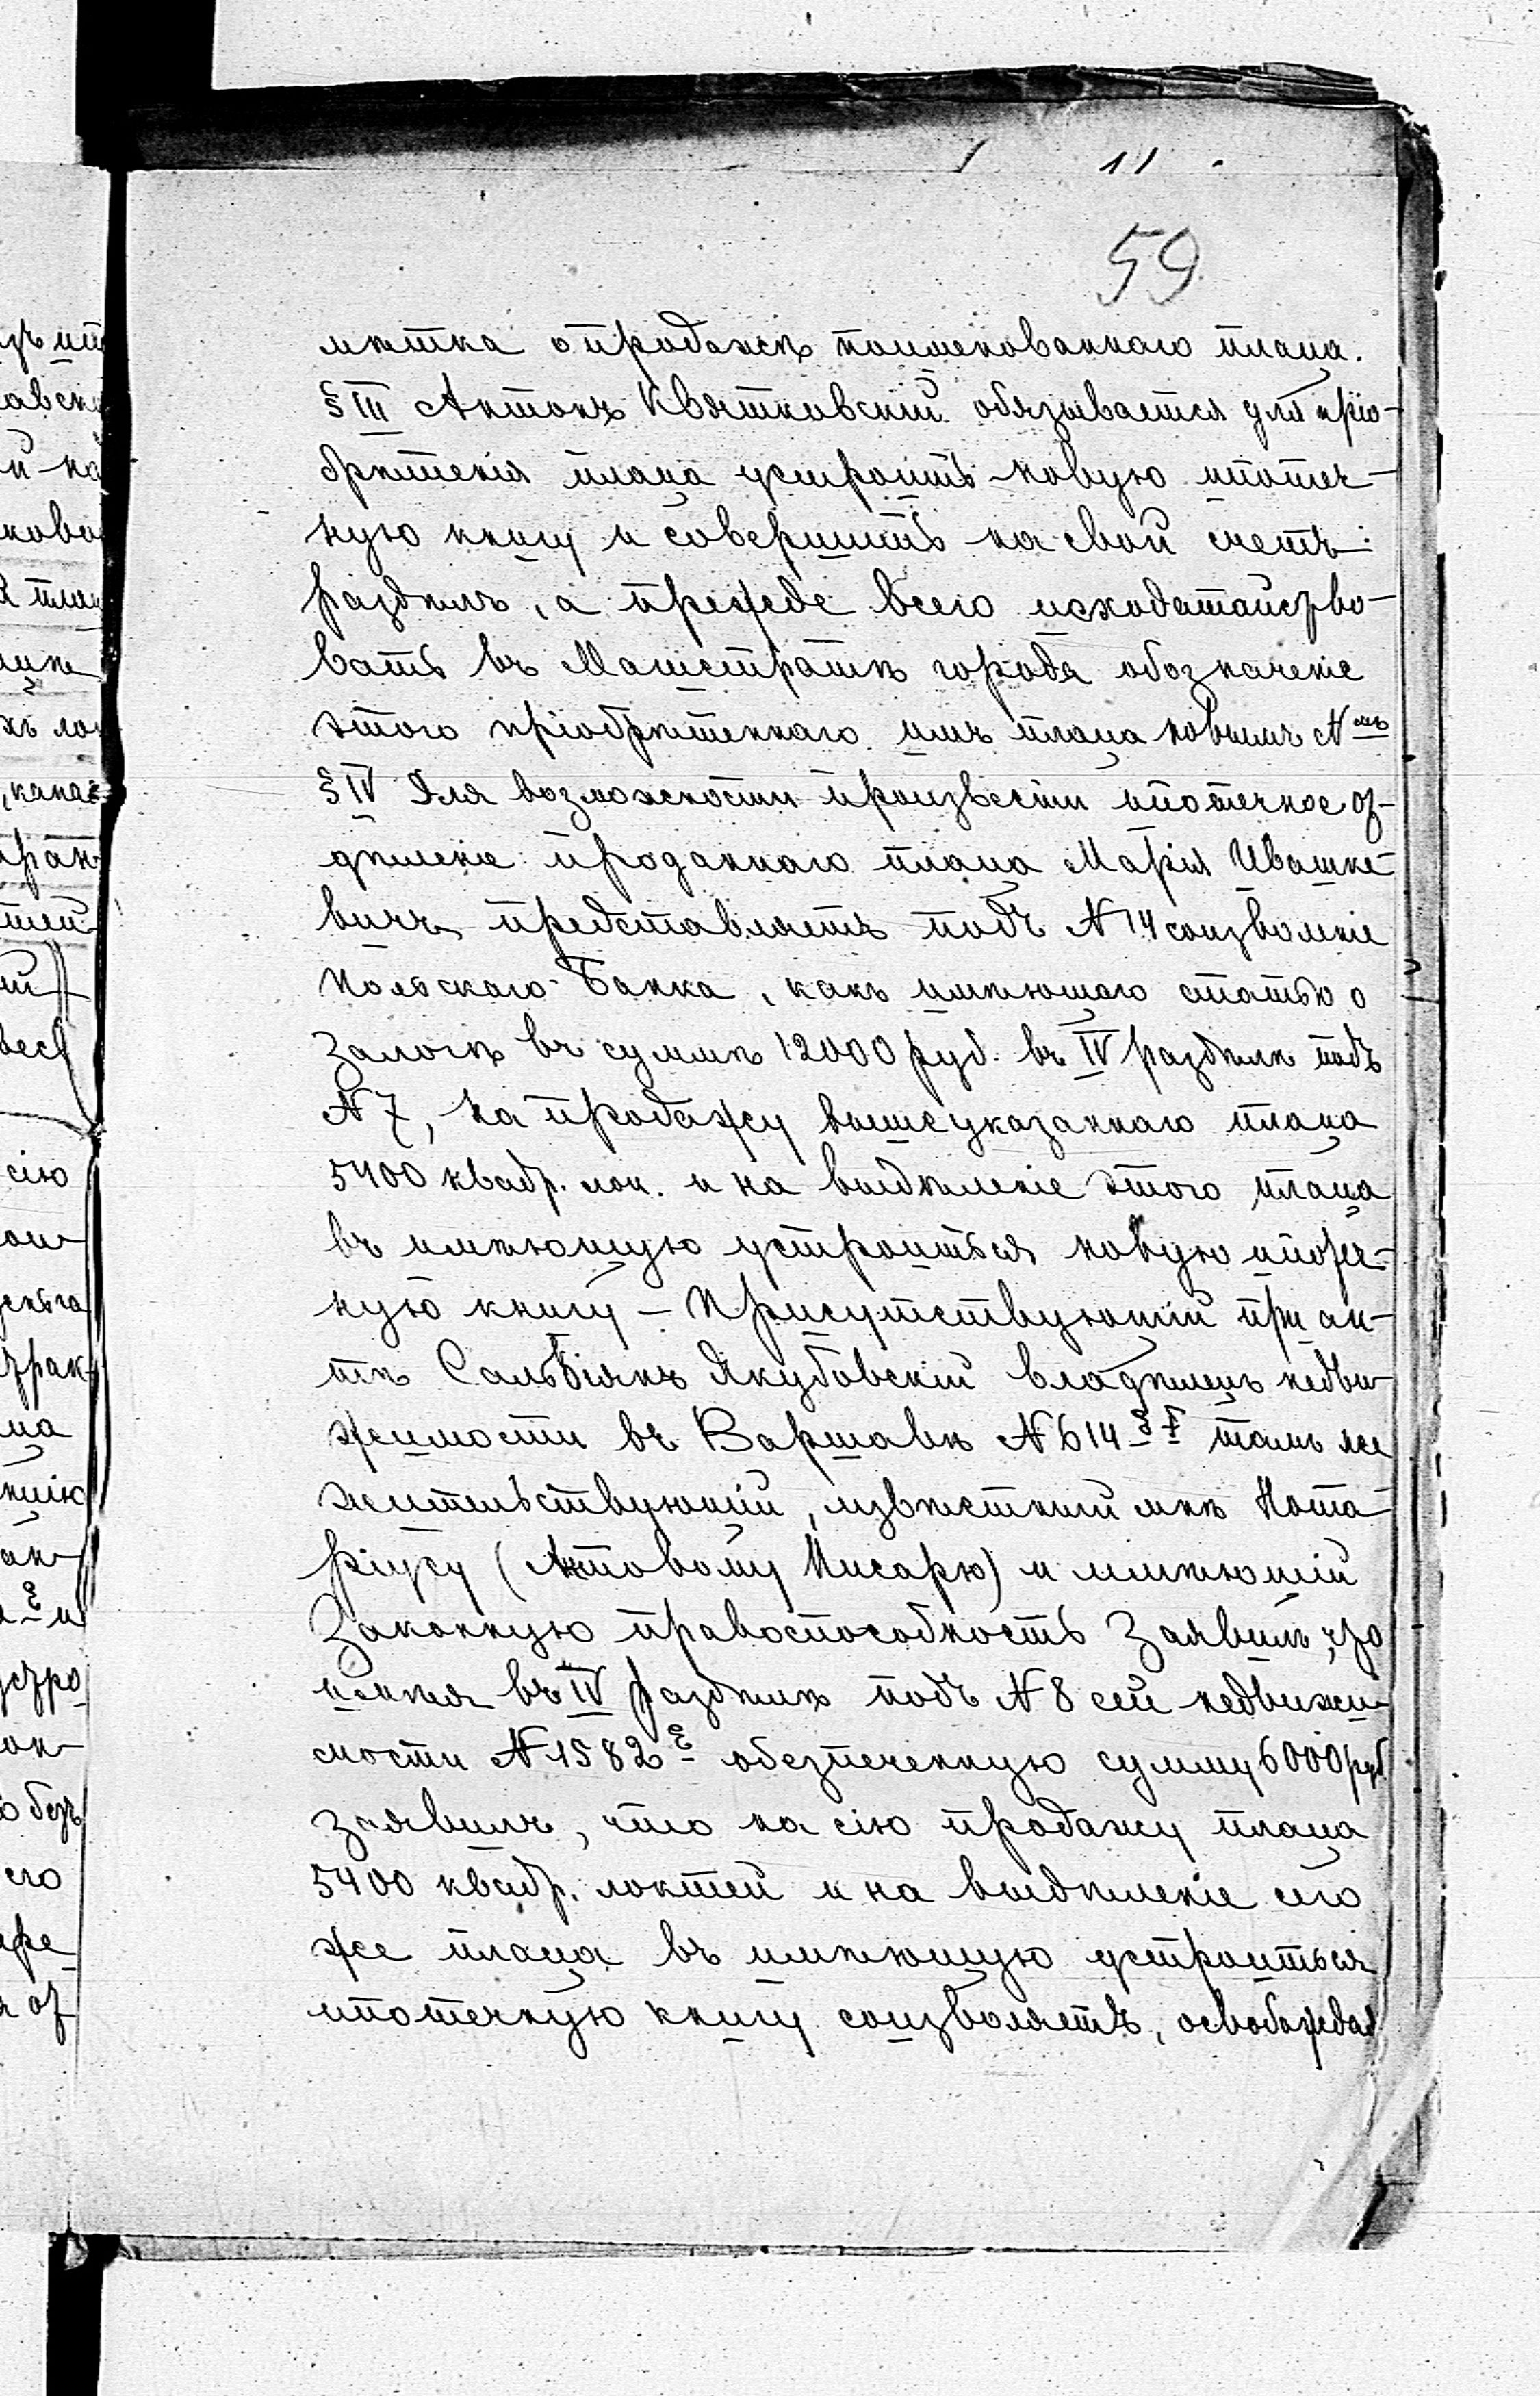 11
59
мѣтка о продажѣ поименованнаго плаца.
§ III Антонъ Квятковскій обязывается для пріо-
брѣтенія плаца устроить новую ипотеч-
ную книгу и совершить на свой счетъ
раздѣлъ, а прежде всего исходатайство-
вать въ Магистратѣ города обозначеніе
этого пріобрѣтеннаго имъ плаца новымъ №мъ
§ IV Для возможности произвести ипотечное от-
дѣленіе проданнаго плаца Марія Ивашке-
вичъ представляетъ подъ № 14 соизволеніе
Польскаго Банка, какъ имѣющаго статью о
залогѣ въ суммѣ 12000 руб. въ IV раздѣлѣ подъ
№ 7, на продажу вышеуказаннаго плаца
5400 квадр. лок. и на выдѣленіе этого плаца
въ имѣющую устроиться новую ипотеч-
ную книгу – Присутствующій при ак-
тѣ Сальвіянъ Якубовскій владѣлецъ недви-
жимости въ Варшавѣ № 614 тамъ же
жительствующій, извѣстный мнѣ Нота-
ріусу (Актовому Писарю) и имѣющій
законную правоспособность заявилъ, что
имѣя въ IV раздѣлѣ подъ № 8 сей недвижи-
мости № 1582 обезпеченную сумму 6000 руб
заявилъ, что на сію продажу плаца
5400 квадр. локтей и на выдѣленіе сего
же плаца въ имѣющую устроиться
ипотечную книгу соизволяетъ, освобождая